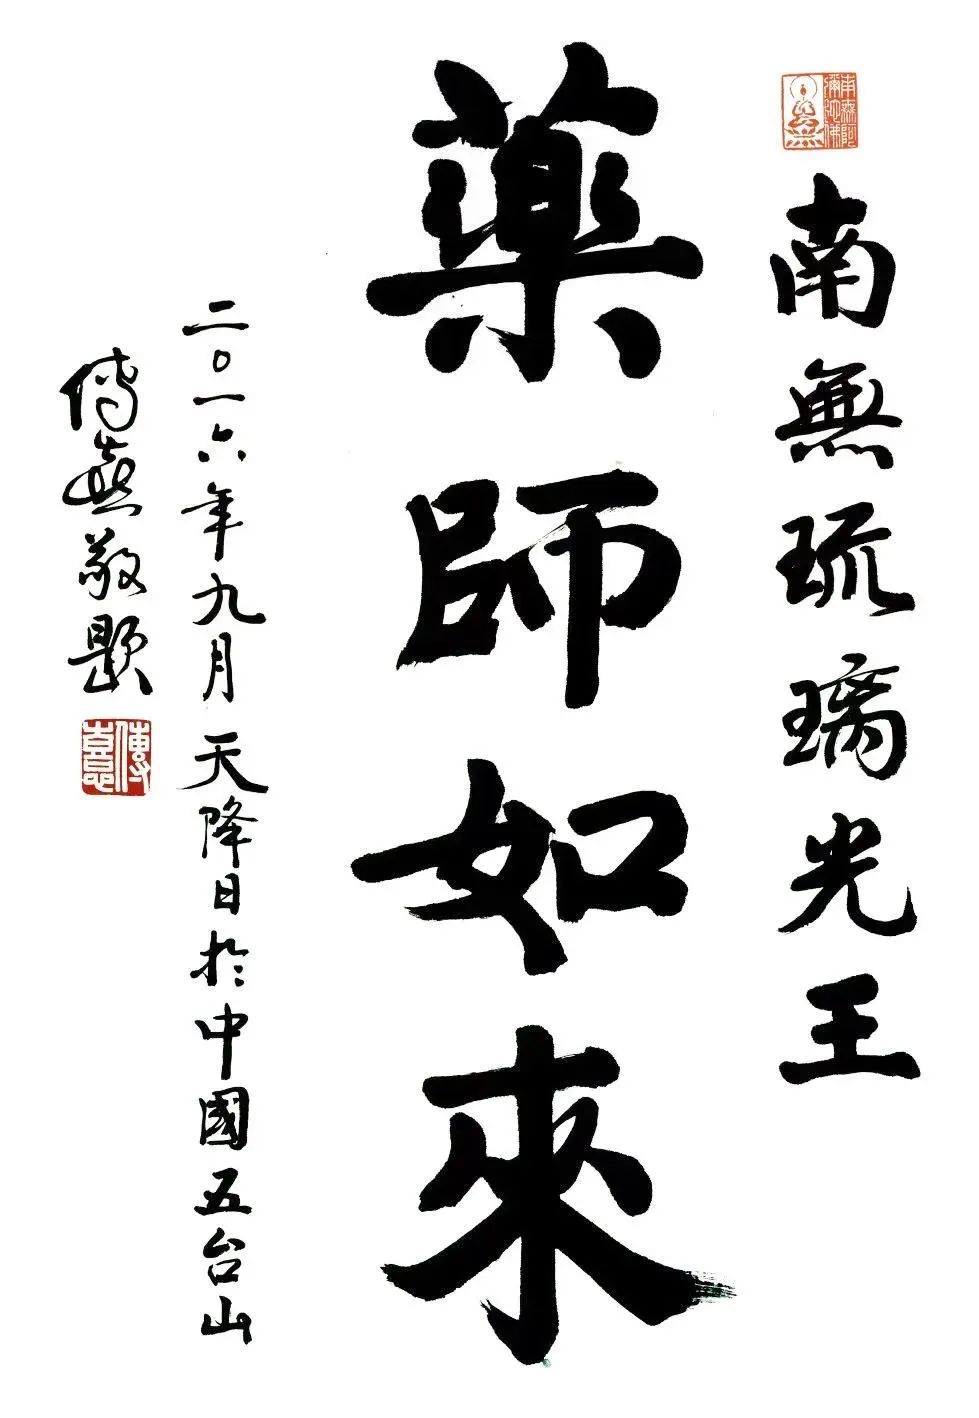 南無阿
彌陀佛
南無琉璃光王
藥師如來
二〇一六年九月天降日於中國五台山
傳憙敬題
傳憙